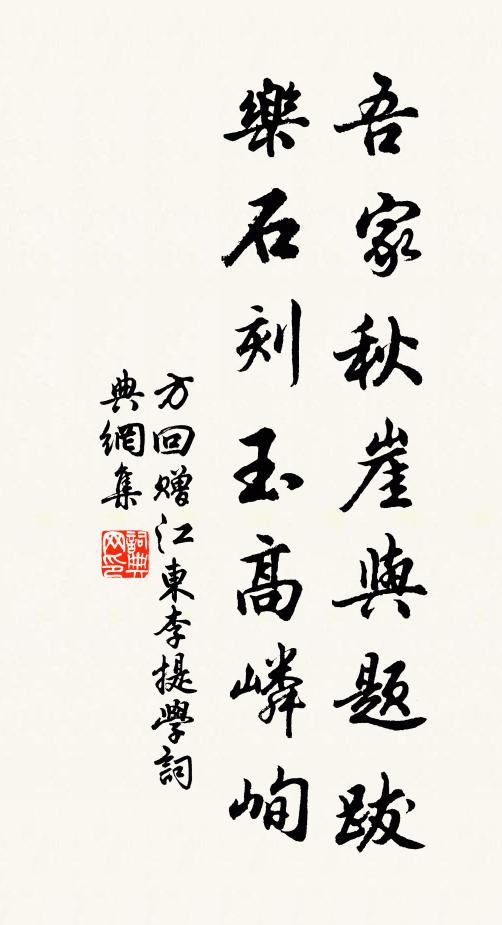 吾家秋崖與題跋
樂石刻玉高嶙峋
方回贈江東李提學詞
典網集
詞典网印